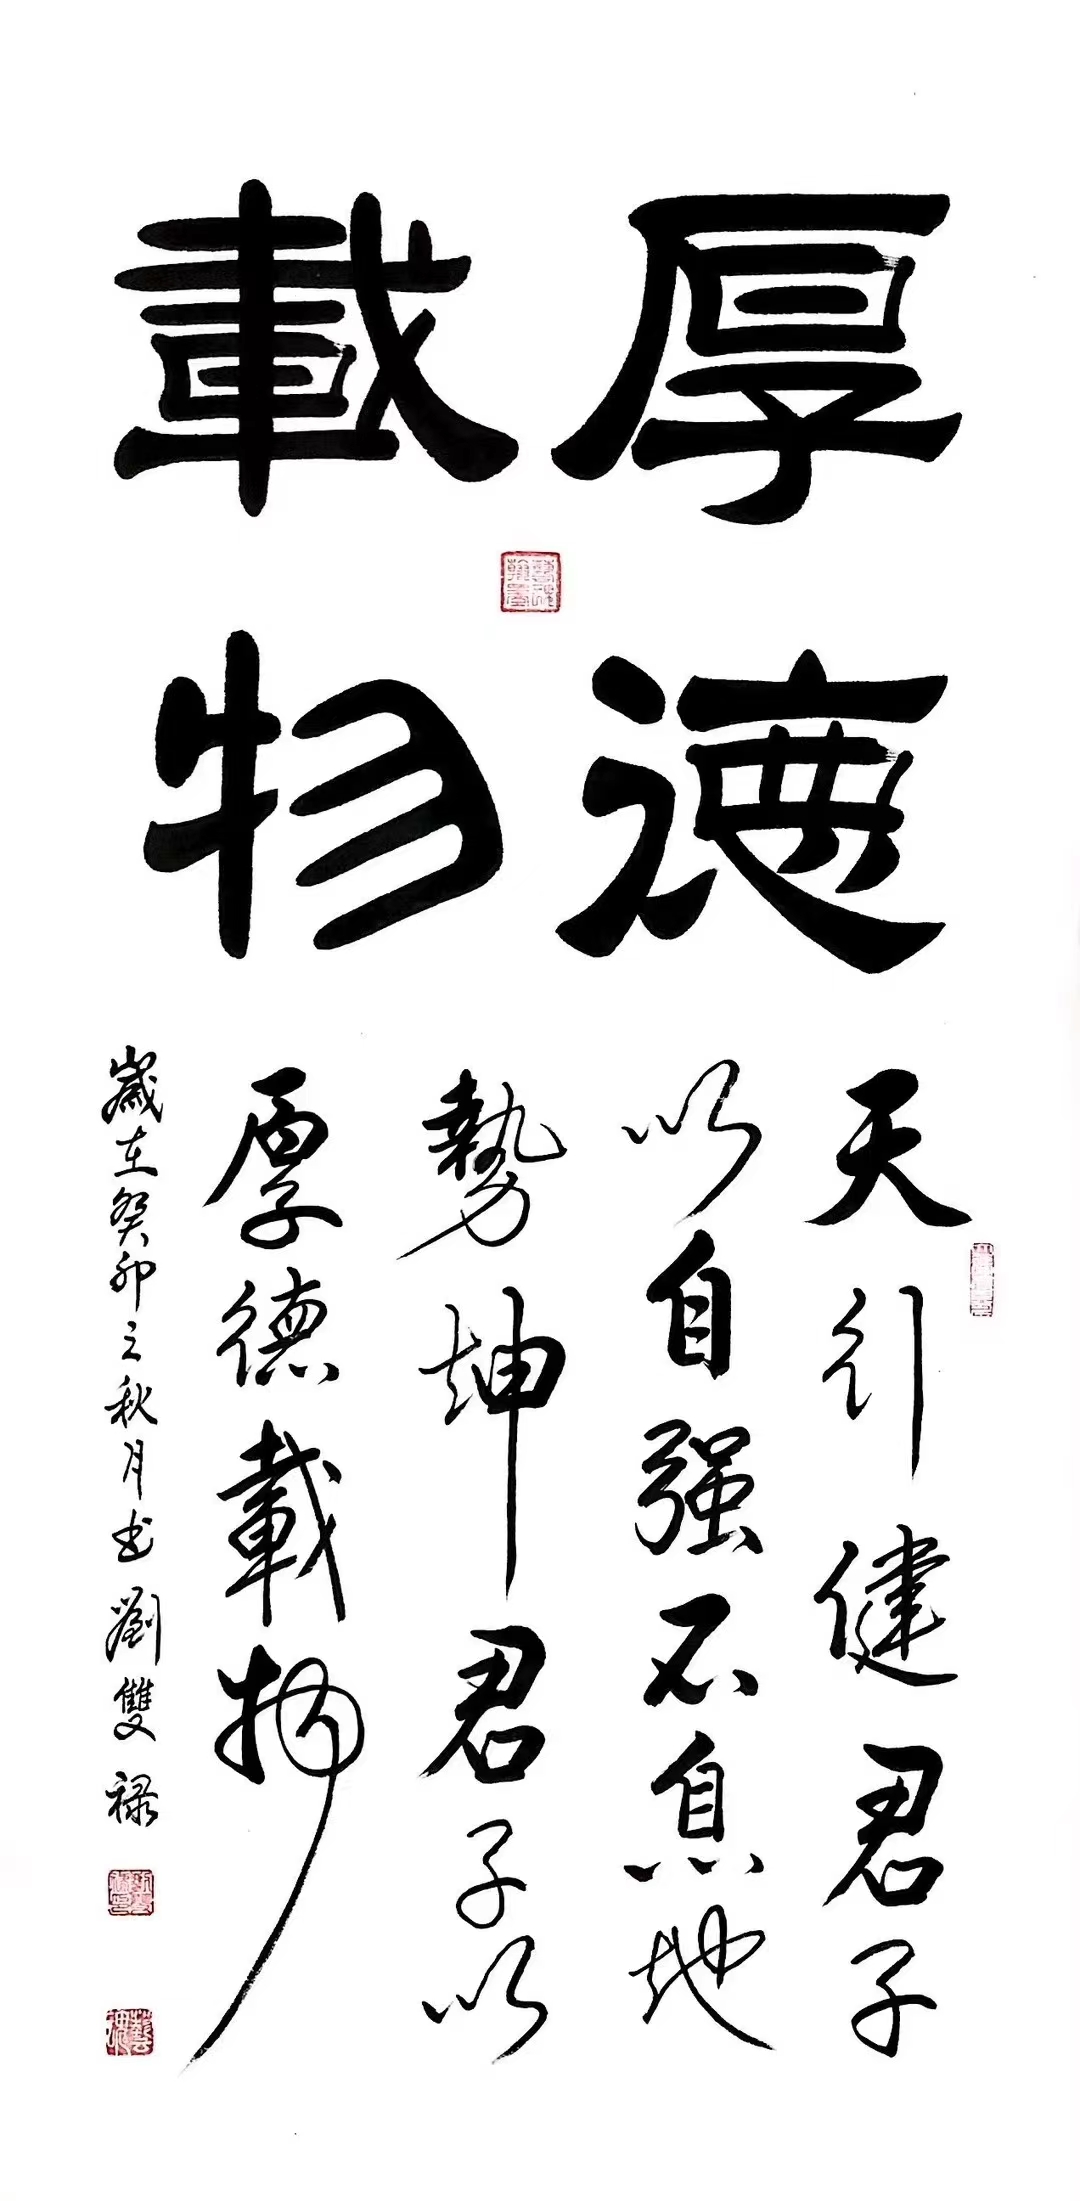 厚德
載物
天行健君子
以自强不息地
勢坤君子以
厚德載物
歲在癸卯之秋月书劉雙禄